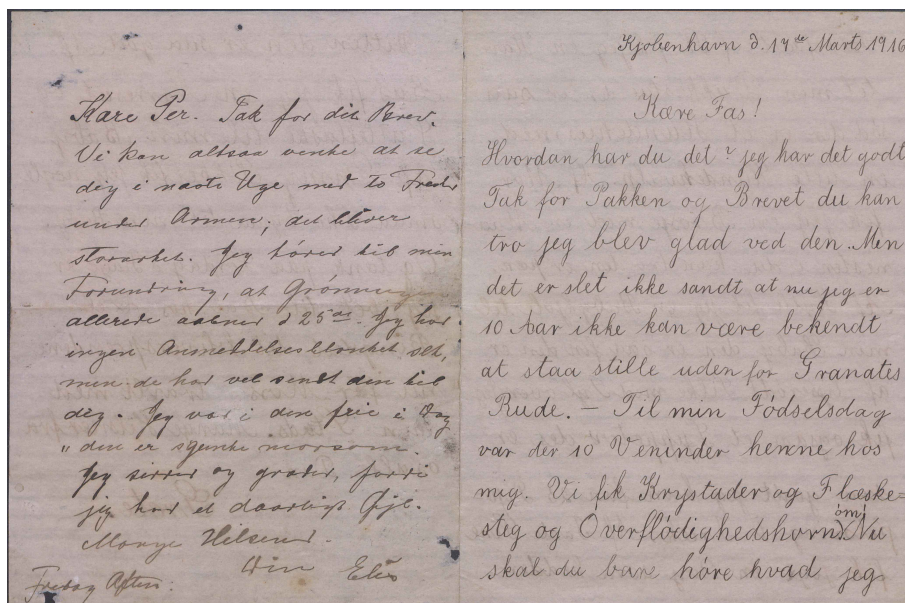 Kære Per. Tak for dit Brev.
Vi kan altsaa vente at se
dig i næste Uge med to
under Armen; det bliver
storartet. Jeg hører til min
Forundring, at Grønningen
allerede aabner d 25de. Jeg har
ingen Anmeldelsesblanket set,
men de har vel sendt den til
dig. Jeg var i den frie i Dag
"den er morsom.
Jeg sidder og græder, fordi
jeg har et daarligt Øje.
Mange Hilsener.
Din
Fredag Aften.
Kjøbenhavn d. 17de Marts 1916
Kære Fas!
Hvordan har du det? jeg har det godt
Tak for Pakken og Brevet du kan
tro jeg blev glad ved den. Men
det er slet ikke sandt at nu jeg er
10 Aar ikke kan være bekendt
at staa stille uden for Granatis
Rude. – Til min Födselsdag
var der 10 Veninder henne hos
mig. Vi fik Krystader og Flæske=
steg og Overflödighedshorn Nu
skal du bare höre hvad jeg